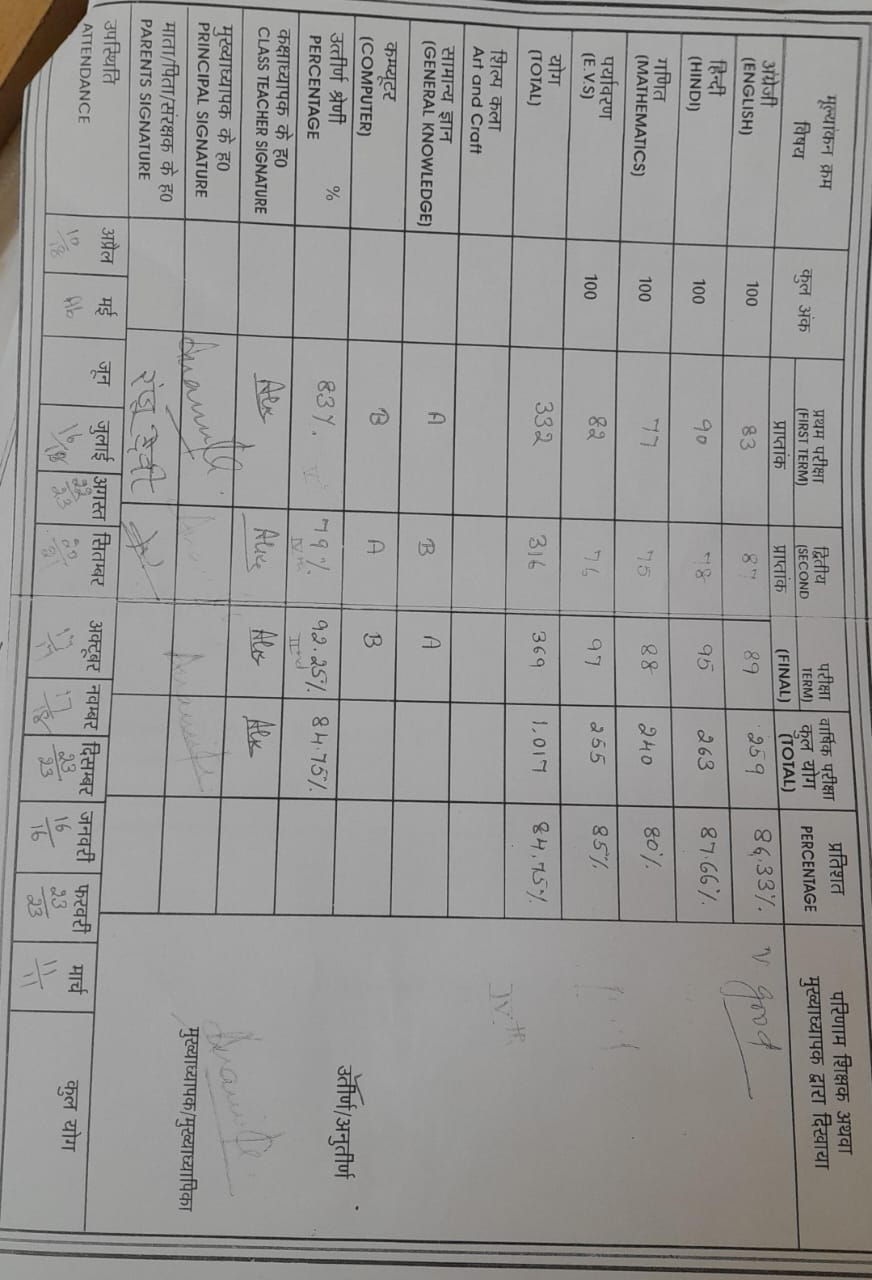 मूल्यांकन क्रम
विषय
कुल अंक
प्रथम परीक्षा
(FIRST TERM)
प्राप्तांक
द्वितीय
(SECOND
प्राप्तांक
परीक्षा
TERM)
(FINAL)
वार्षिक परीक्षा
कुल योग
(TOTAL)
प्रतिशत
PERCENTAGE
परिणाम शिक्षक अथवा
मुख्याध्यापक द्वारा दिखाया
अंग्रेजी
(ENGLISH) 100 83 87 89 259 86.33%
V good
हिन्दी
(HINDI) 100 90 78 95 263 87.66%
गणित
(MATHEMATICS) 100 77 75 88 240 80%
पर्यावरण
(E.V.S) 100 82 76 97 255 85%
योग
(TOTAL) 332 316 369 1,017 84.75%
IVth
शिल्प कला
Art and Craft
सामान्य ज्ञान
(GENERAL KNOWLEDGE) A B A
कम्प्यूटर
(COMPUTER) B A B
उत्तीर्ण श्रेणी %
PERCENTAGE 83% 79% 92.25% 84.75%
उत्तीर्ण/अनुत्तीर्ण
कक्षाध्यापक के ह0
CLASS TEACHER SIGNATURE
मुख्याध्यापक के ह0
PRINCIPAL SIGNATURE
मुख्याध्यापक/मुख्याध्यापिका
माता/पिता/संरक्षक के ह0
PARENTS SIGNATURE
उपस्थिति
ATTENDANCE
अप्रैल मई जून जुलाई अगस्त सितम्बर अक्टूबर नवम्बर दिसम्बर जनवरी फरवरी मार्च कुल योग
10/18 Ab 16/18 22/23 17/18 23/23 16/16 23/23 11/11